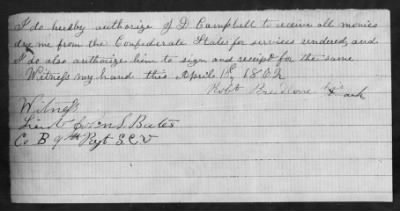 I do hereby authorize of D. Campbell to receive all monies
due me from the Confederate States for services rendered, and
I do also authorize him to sign and receipt for the same
Witness my hand this April 1st 1862
Robt his X mark
Witness
Lieut S. Bates
Co B 9th Regt S.C.V